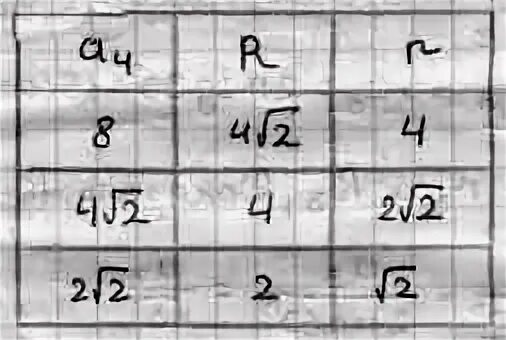 a₄ R r
8 4√2 4
4√2 4 2√2
2√2 2 √2